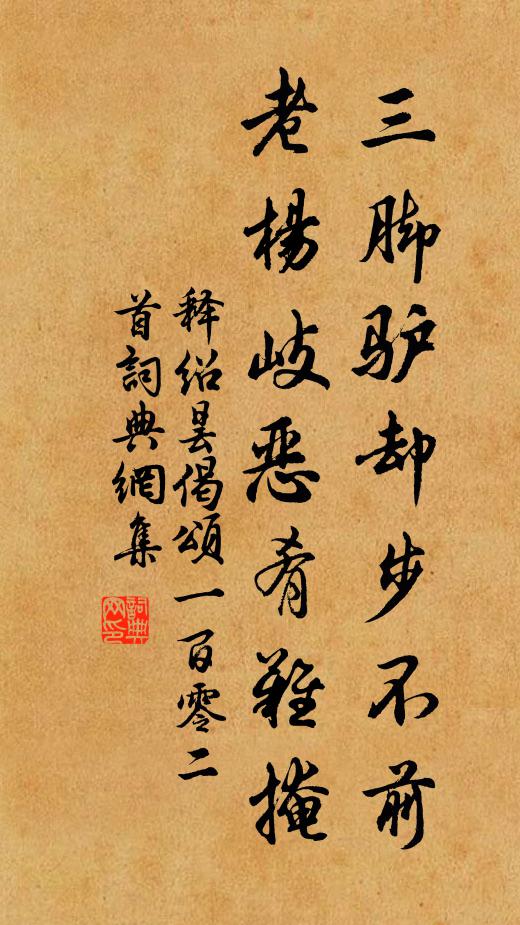 三脚驴却步不前
老楊岐恶肴難掩
释绍昙偈頌一百零二
首詞典網集
詞典
网印